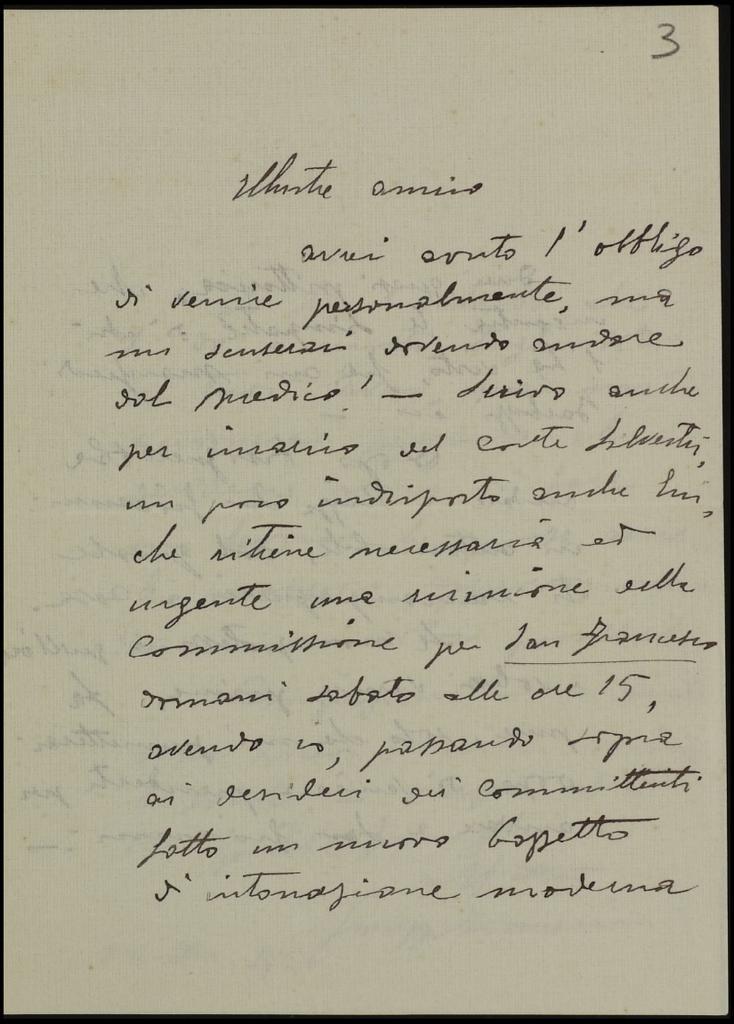 3
Illustre amico
avrei avuto l'obbligo
di venire personalmente, ma
mi scuserai dovendo andare
dal medico! — Scrivo anche
per incarico del conte Silvestri,
un poco indisposto anche lui,
che ritiene necessaria ed
urgente una riunione della
Commissione per San Francesco
domani sabato alle ore 15,
avendo io, passando sopra
ai desideri dei Committenti
fatto un nuovo bozzetto
d'intonazione moderna